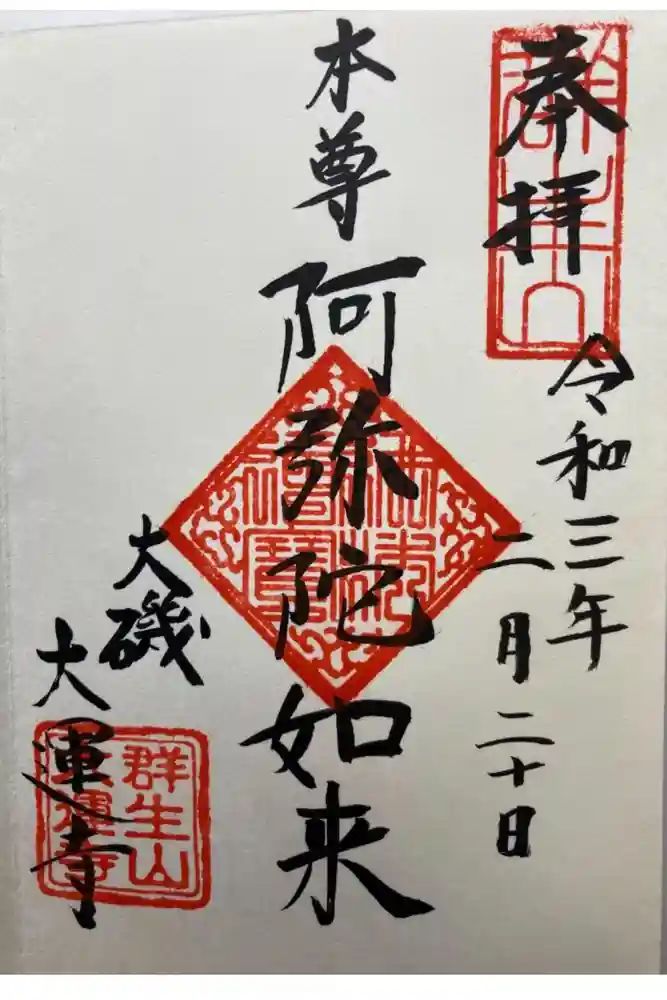 奉拝
群生山
令和三年
二月二十日
本尊
阿弥陀如来
大磯
大運寺
群生山
大運寺